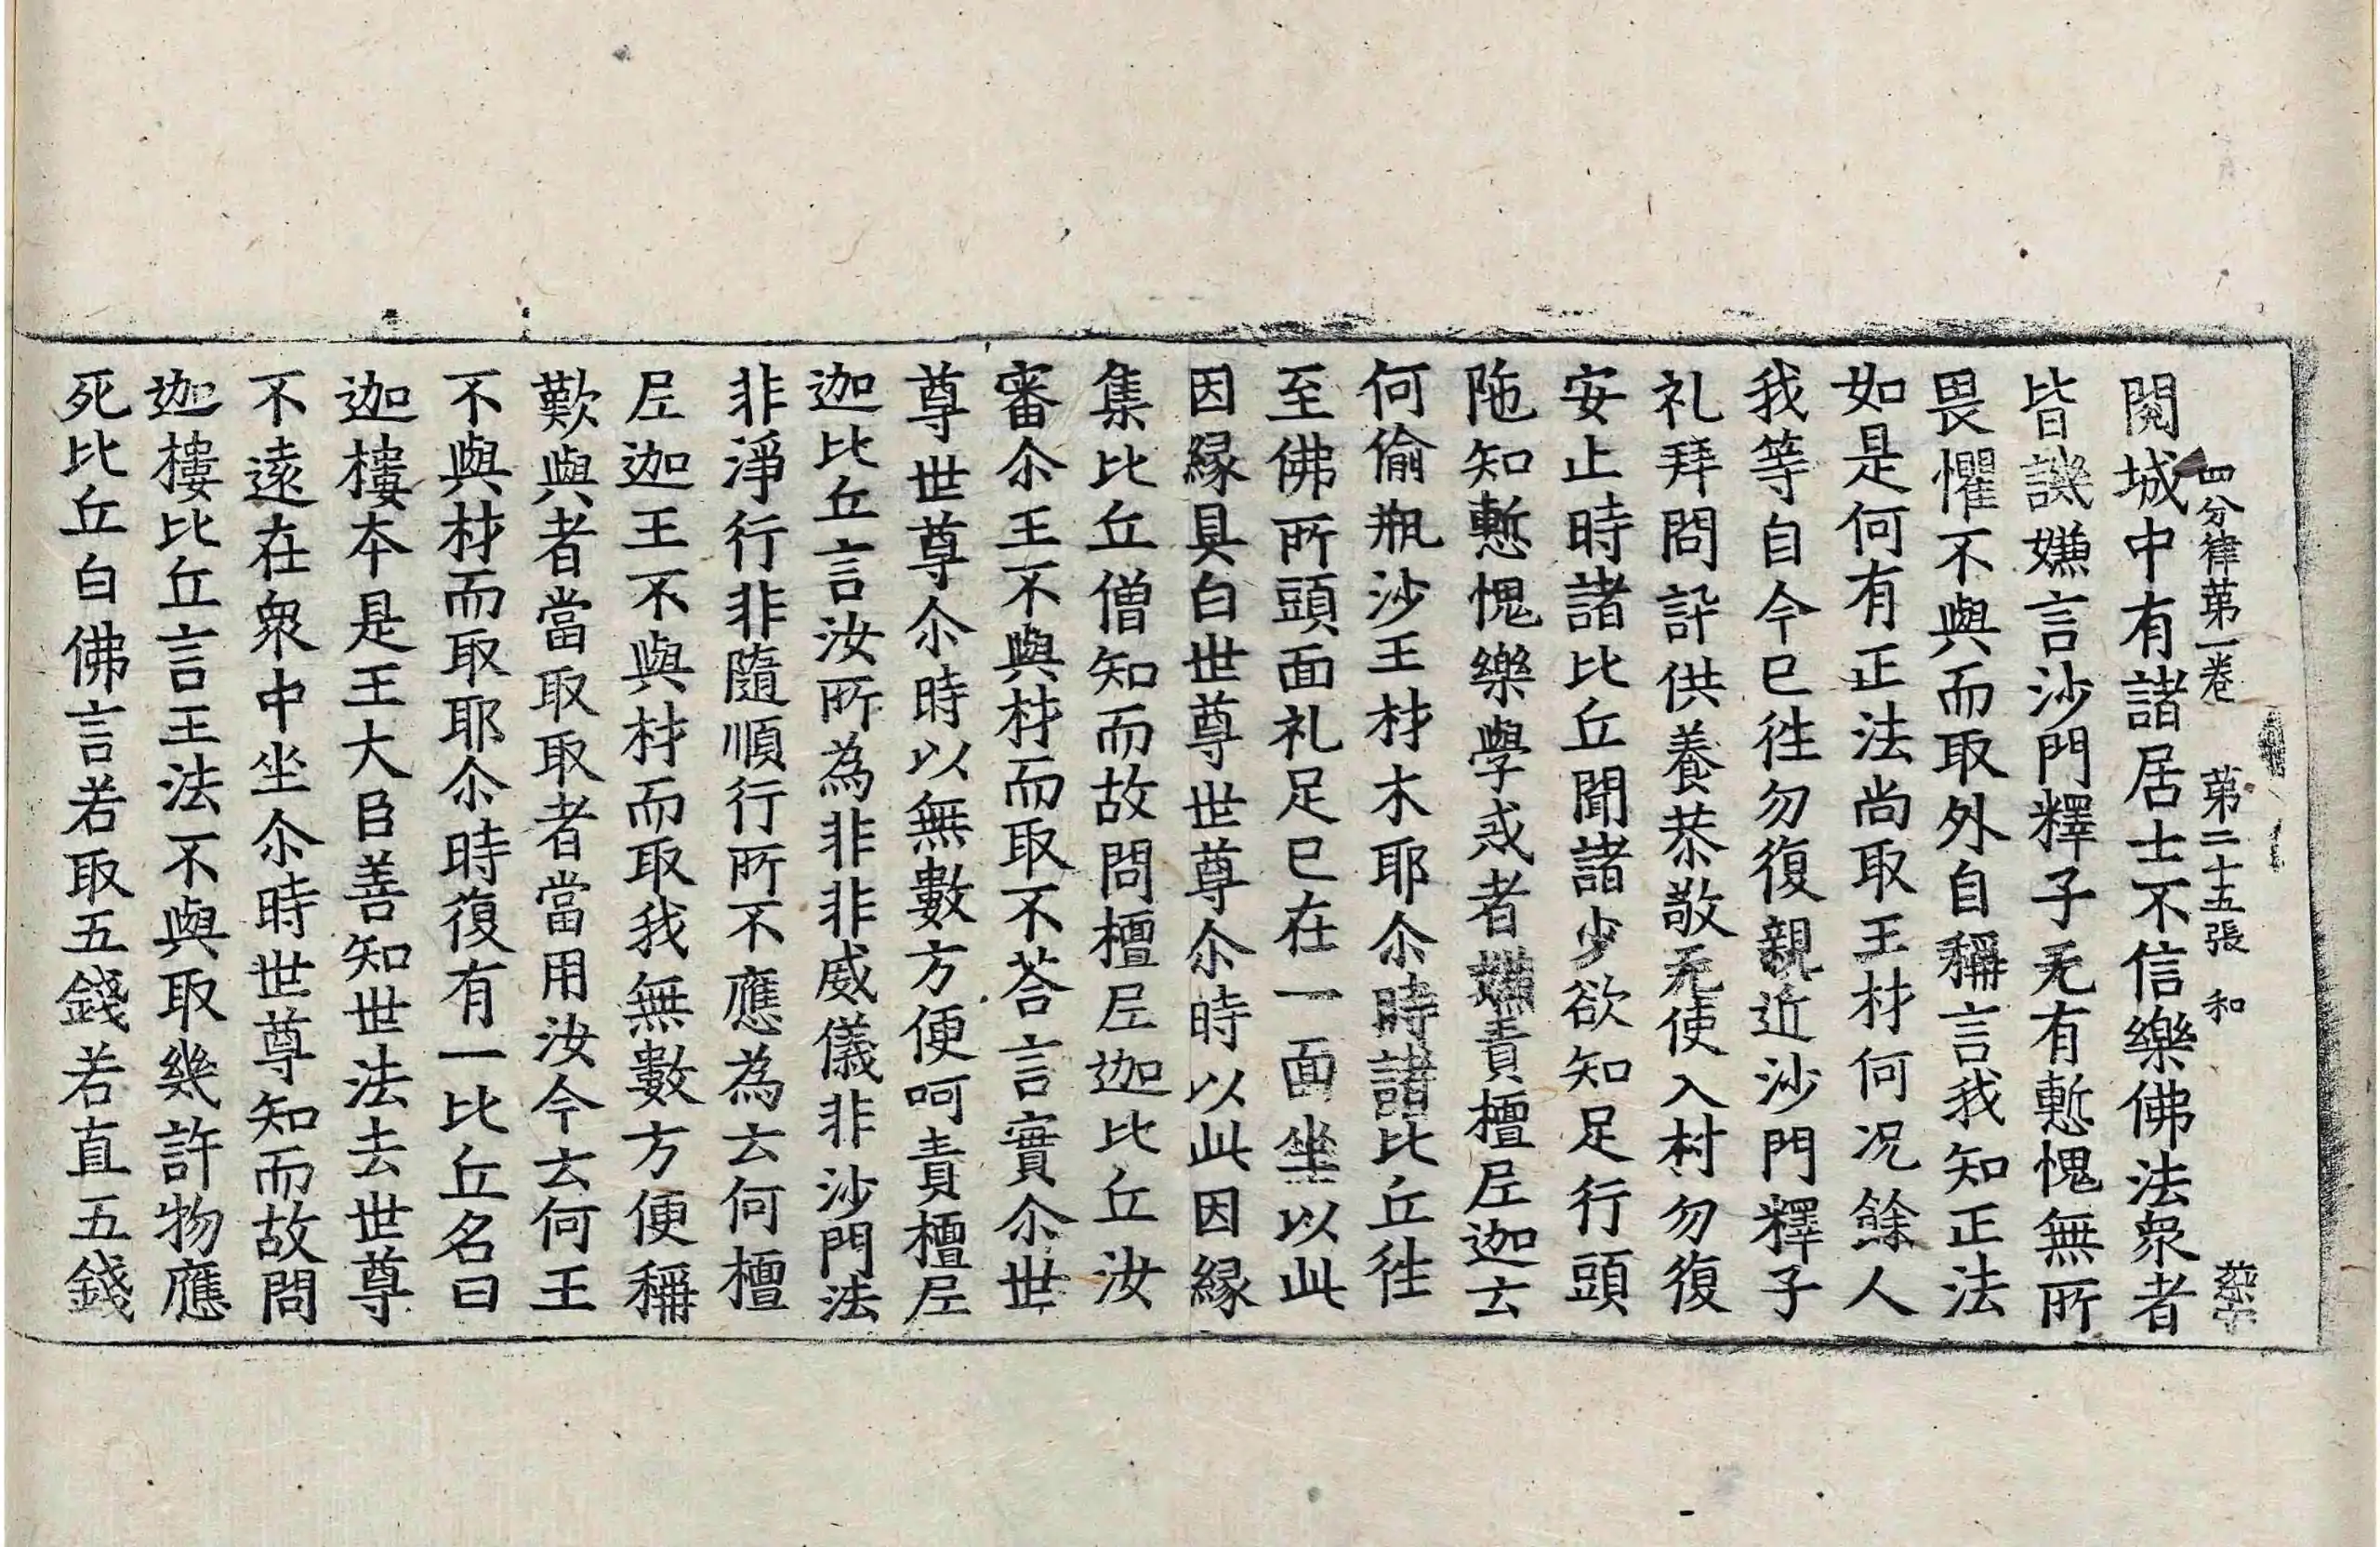 四分律苐一卷 苐二十五張 和
閱城中有諸居士不信樂佛法衆者
皆譏嫌言沙門釋子无有慙愧無所
畏懼不與而取外自稱言我知正法
如是何有正法尚取王材何况餘人
我等自今已徃勿復親近沙門釋子
礼拜問訊供養恭敬无使入村勿復
安止時諸比丘聞諸少欲知足行頭
陁知慙愧樂學戒者嫌責檀𡰱迦云
何偷瓶沙王材木耶尒時諸比丘徃
至佛所頭面礼足已在一面坐以此
因緣具白世尊世尊尒時以此因緣
集比丘僧知而故問檀𡰱迦比丘汝
審尒王不與材而取不荅言實尒世
尊世尊尒時以無數方便呵責檀𡰱
迦比丘言汝所為非非威儀非沙門法
非淨行非隨順行所不應為云何檀
𡰱迦王不與材而取我無數方便稱
歎與者當取取者當用汝今云何王
不與材而取耶尒時復有一比丘名曰
迦樓本是王大臣善知世法去世尊
不遠在衆中坐尒時世尊知而故問
迦樓比丘言王法不與取幾許物應
死比丘白佛言若取五錢若直五錢